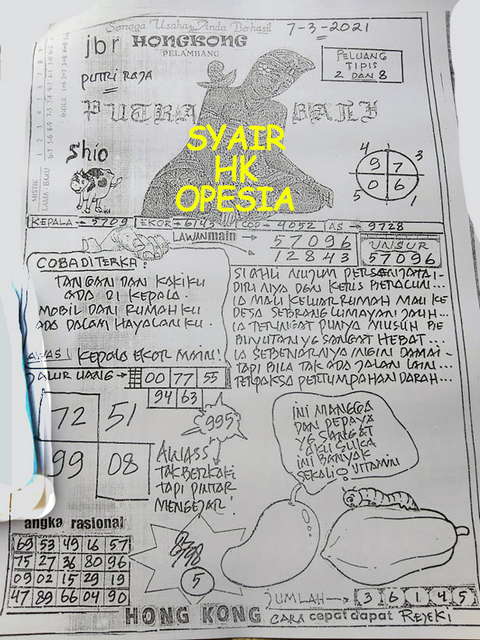 Semoga Usaha Anda Berhasil
7-3-2021
jbr HONGKONG
PELAMBANG
PUTRI RAJA
PELUANG
TIPIS
2 DAN 8
PUTRA BATI
SYAIR
HK
OPESIA
Shio
4 3
9 7
0 6
5 1
KEPALA → 5709 EKOR → 6143 COP → 4052 AS → 9728
LAWAN main → 57096
12843
UNSUR
57096
COBA DITERKA:
TANGAN DAN KAKIKU
ADA DI KEPALA.
MOBIL DAN RUMAHKU
ADA DALAM HAYALANKU.
AWAS! KEPALA EKOR MAIN!
SI AHLI NUJUM PERSENJATAI-
DIRINYA DGN KERIS
IA MAU KELUAR RUMAH MAU KE
DESA SEBRANG LUMAYAN JAUH...
IA TERINGAT PUNYA MUSUH BE
BUYUTAN YG SANGAT HEBAT...
IA SEBENARNYA INGIN DAMAI-
TAPI BILA TAK ADA JALAN LAIN...
TERPAKSA PERTUMPAHAN DARAH...
JALUR UANG → 00 77 55
94 63
995
72 51
99 08
AWASS
TAK BERKAKI
TAPI PINTAR
MENGEJAR!
INI MANGGA
DAN PEPAYA
YG SANGAT
AKU SUKA
INI BANYAK
SEKALI VITAMIN
angka rasional
69 53 49 16 57
75 27 36 80 96
09 02 15 29 19
47 89 66 04 90
5
JUMLAH → 3 6 1 4 5
HONG KONG CARA cepat dapat REJEKI